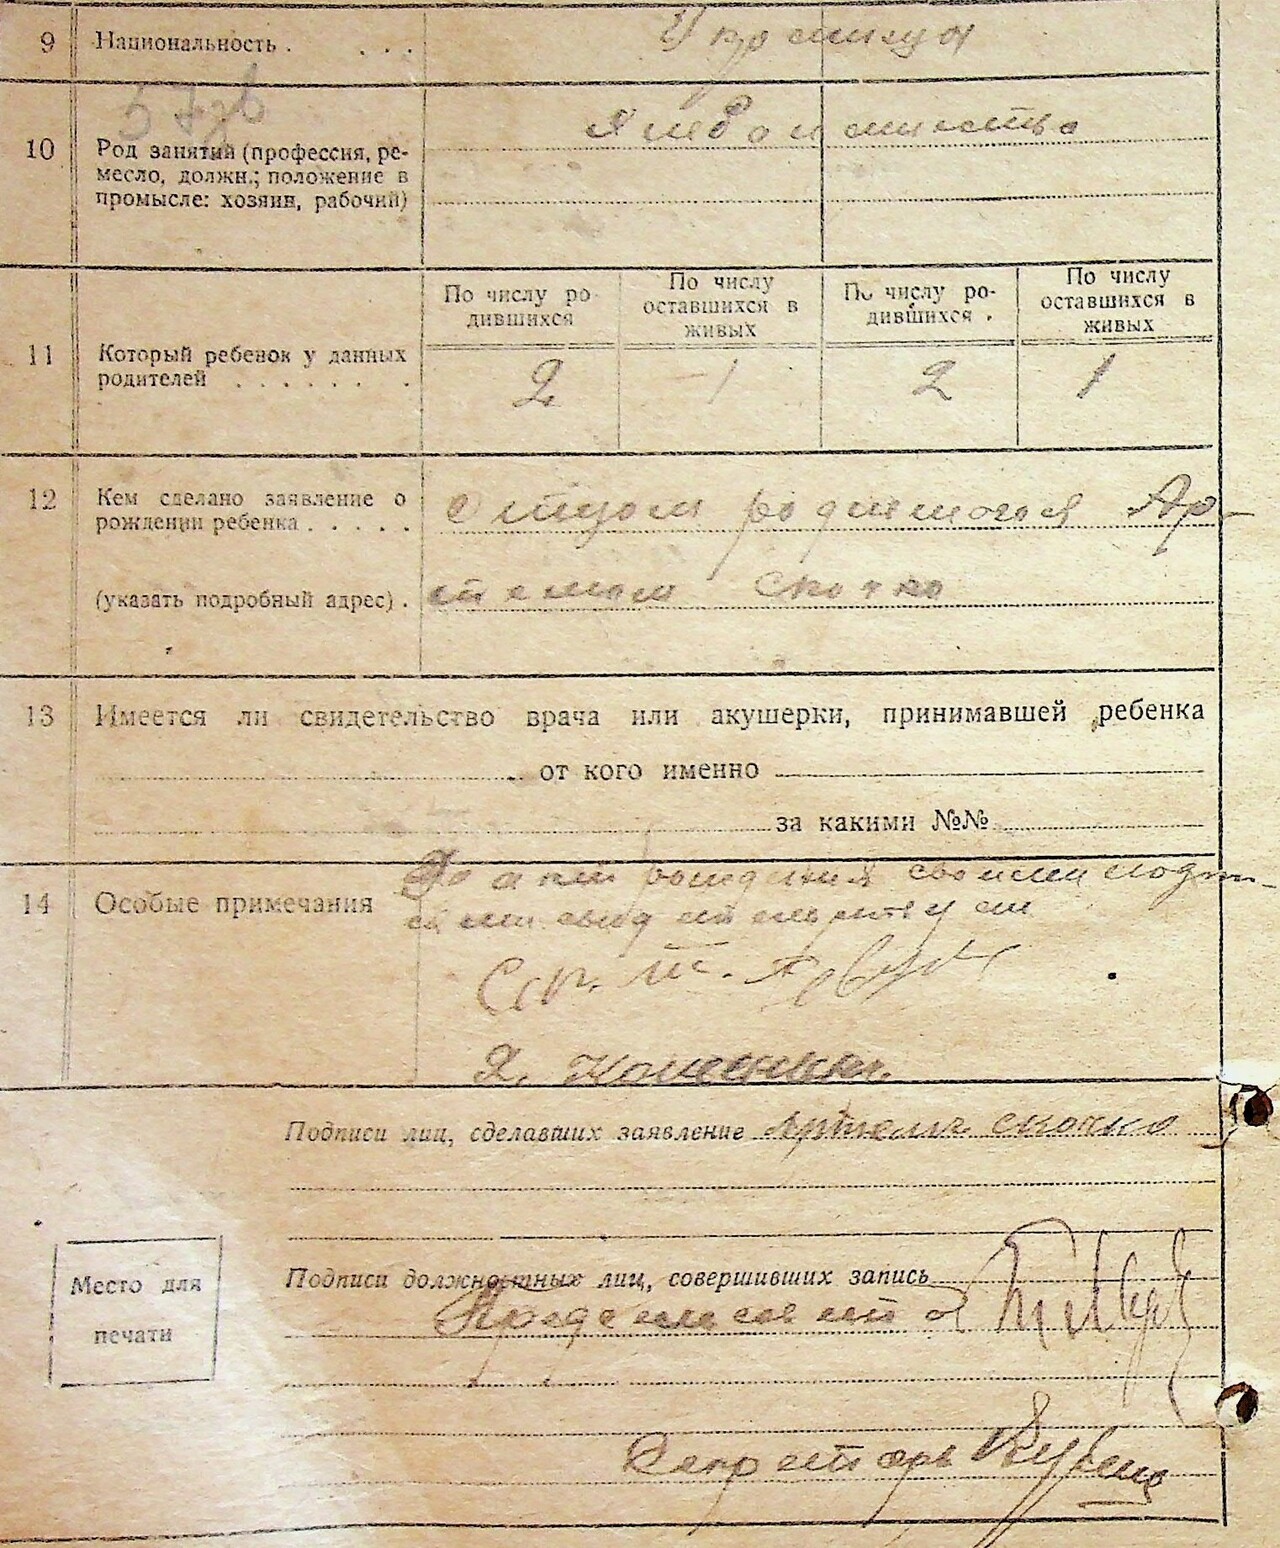 9 Национальность . . . . Украинцы
10 Род занятий (профессия, ре-
месло, должн.; положение в
промысле: хозяин, рабочий)
Хлебопашество
По числу ро
дившихся
По числу
оставшихся в
живых
По числу ро-
дившихся .
По числу
оставшихся в
живых
11 Который ребенок у данных
родителей . . . . . . .
2 1 2 1
12 Кем сделано заявление о
рождении ребенка . . . . .
отцом родившогося Ар-
(указать подробный адрес) . темом Скочко
13 Имеется ли свидетельство врача или акушерки, принимавшей ребенка
от кого именно
за какими №№
14 Особые примечания
акт рождения своими подпи-
Подписи лиц, сделавших заявление Артемъ скочко
Место для
печати
Подписи должностных лиц, совершивших запись
Предсельсовета
Секретарь